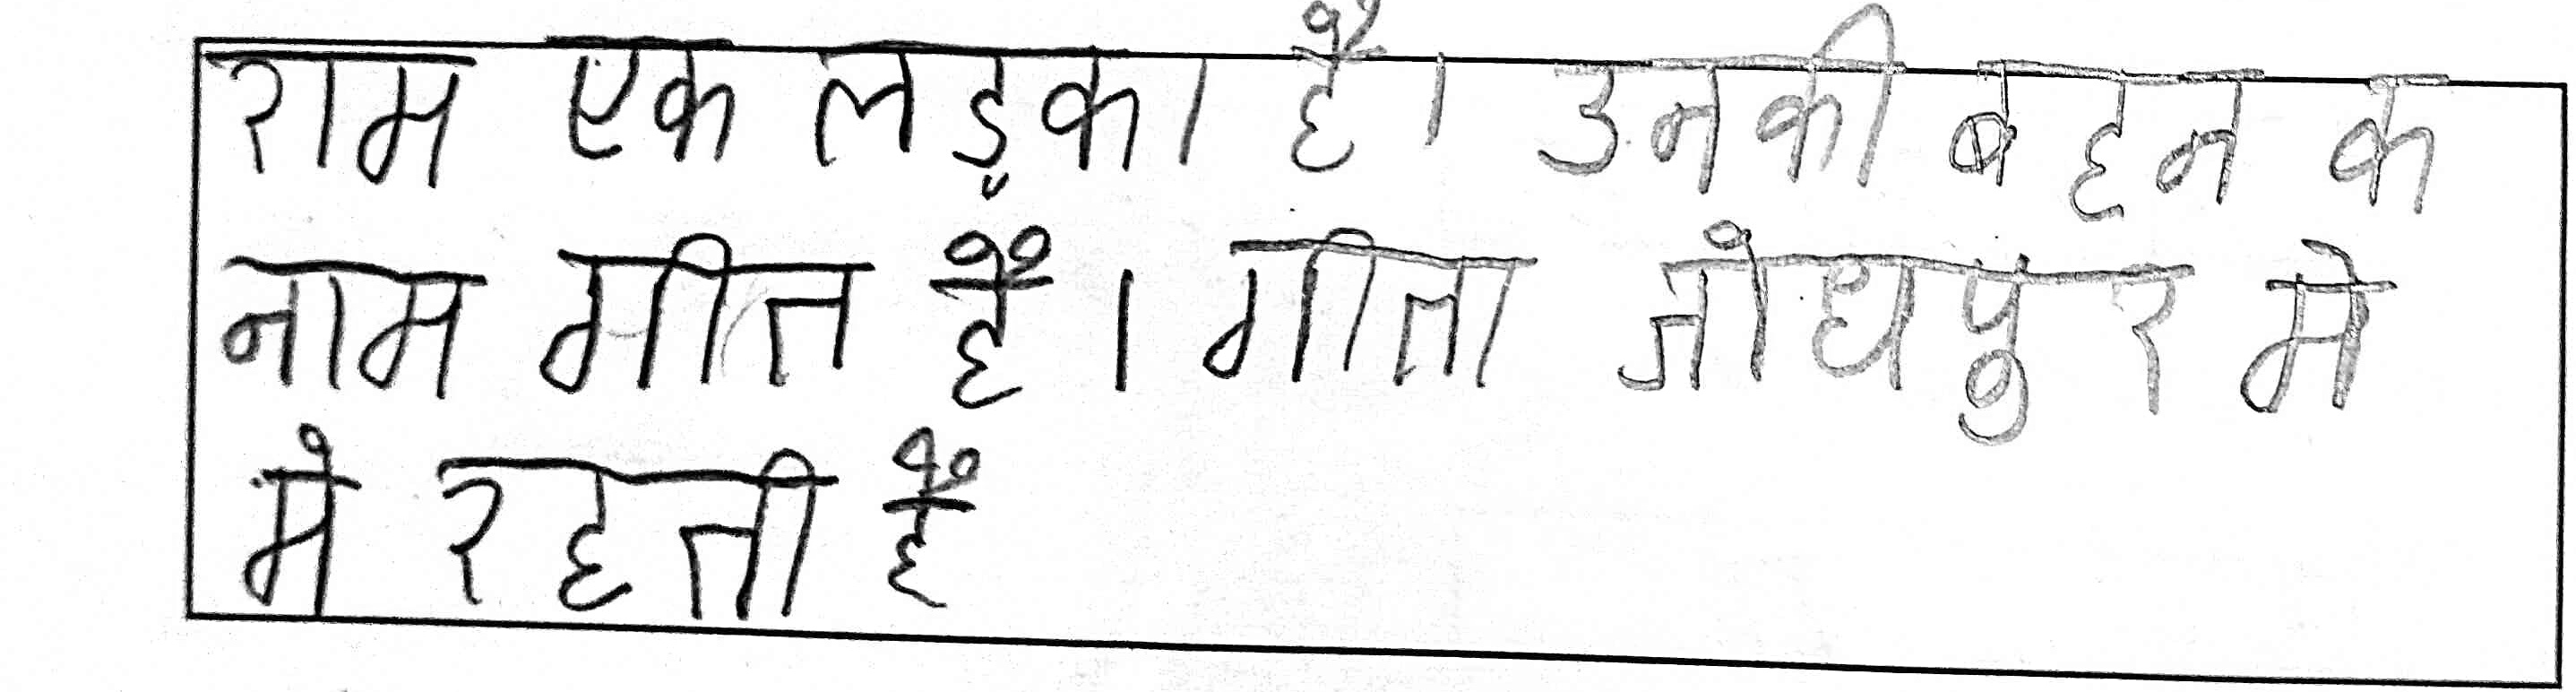 राम एक लड़का है। उनकी बहन क
नाम गीत हैं। गीता जोधपुर मे
मे रहती हैं